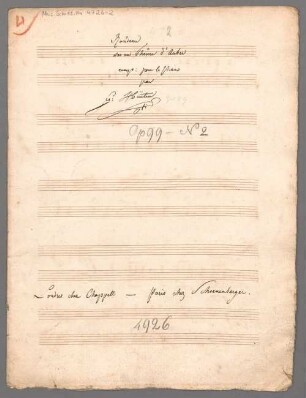 Mus. Schott. Ha 4926-2
2
Rondeau
sur un Thême d'Auber
comp: pour le Piano
par
Op 99 - No 2
Londres chez Chappell — Paris chez Schonenberger.
4926